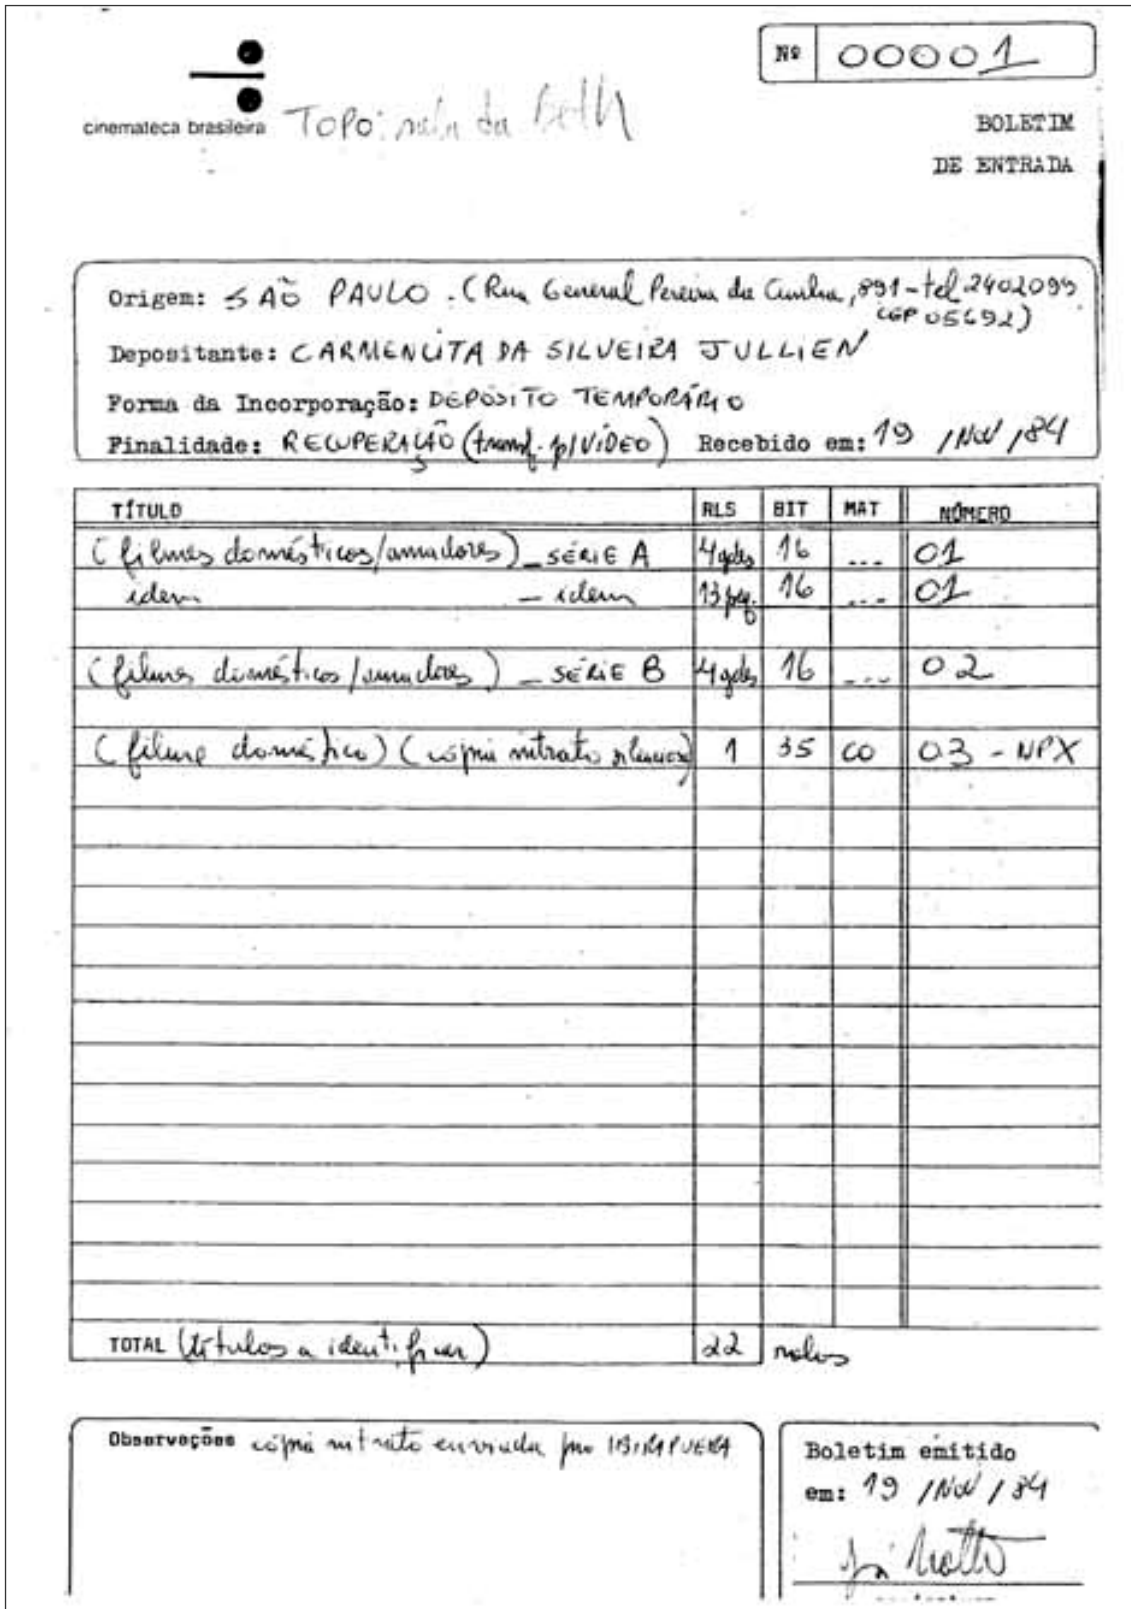 Nº 00001
cinemateca brasileira TOPO: sala da Beth
BOLETIM
DE ENTRADA
Origem: SÃO PAULO. (Rua General Pereira da Cunha, 891 - tel 2402099
CEP 05692)
Depositante: CARMENCITA DA SILVEIRA JULLIEN
Forma da Incorporação: DEPÓSITO TEMPORÁRIO
Finalidade: RECUPERAÇÃO (transf. p/ VÍDEO) Recebido em: 19 / Nov / 84
TÍTULO RLS BIT MAT NÚMERO
(filmes domésticos/amadores) _ SÉRIE A 4 gdes 16 ... 01
idem - idem 13 peq. 16 ... 01
(filmes domésticos/amadores) _ SÉRIE B 4 gdes 16 ... 02
(filme doméstico) (cópia nitrato silenciosa) 1 35 CO 03 - NPX
TOTAL (títulos a identificar) 22 rolos
Observações cópia nitrato enviada pro IBIRAPUERA
Boletim emitido
em: 19 / Nov / 84